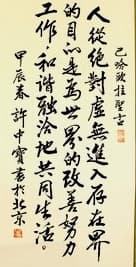 巴哈歐拉聖言
人從絕對虛無進入存在界
的目的是為世界的改善努力
工作,和諧融洽地共同生活。
甲辰春許中寶書於北京